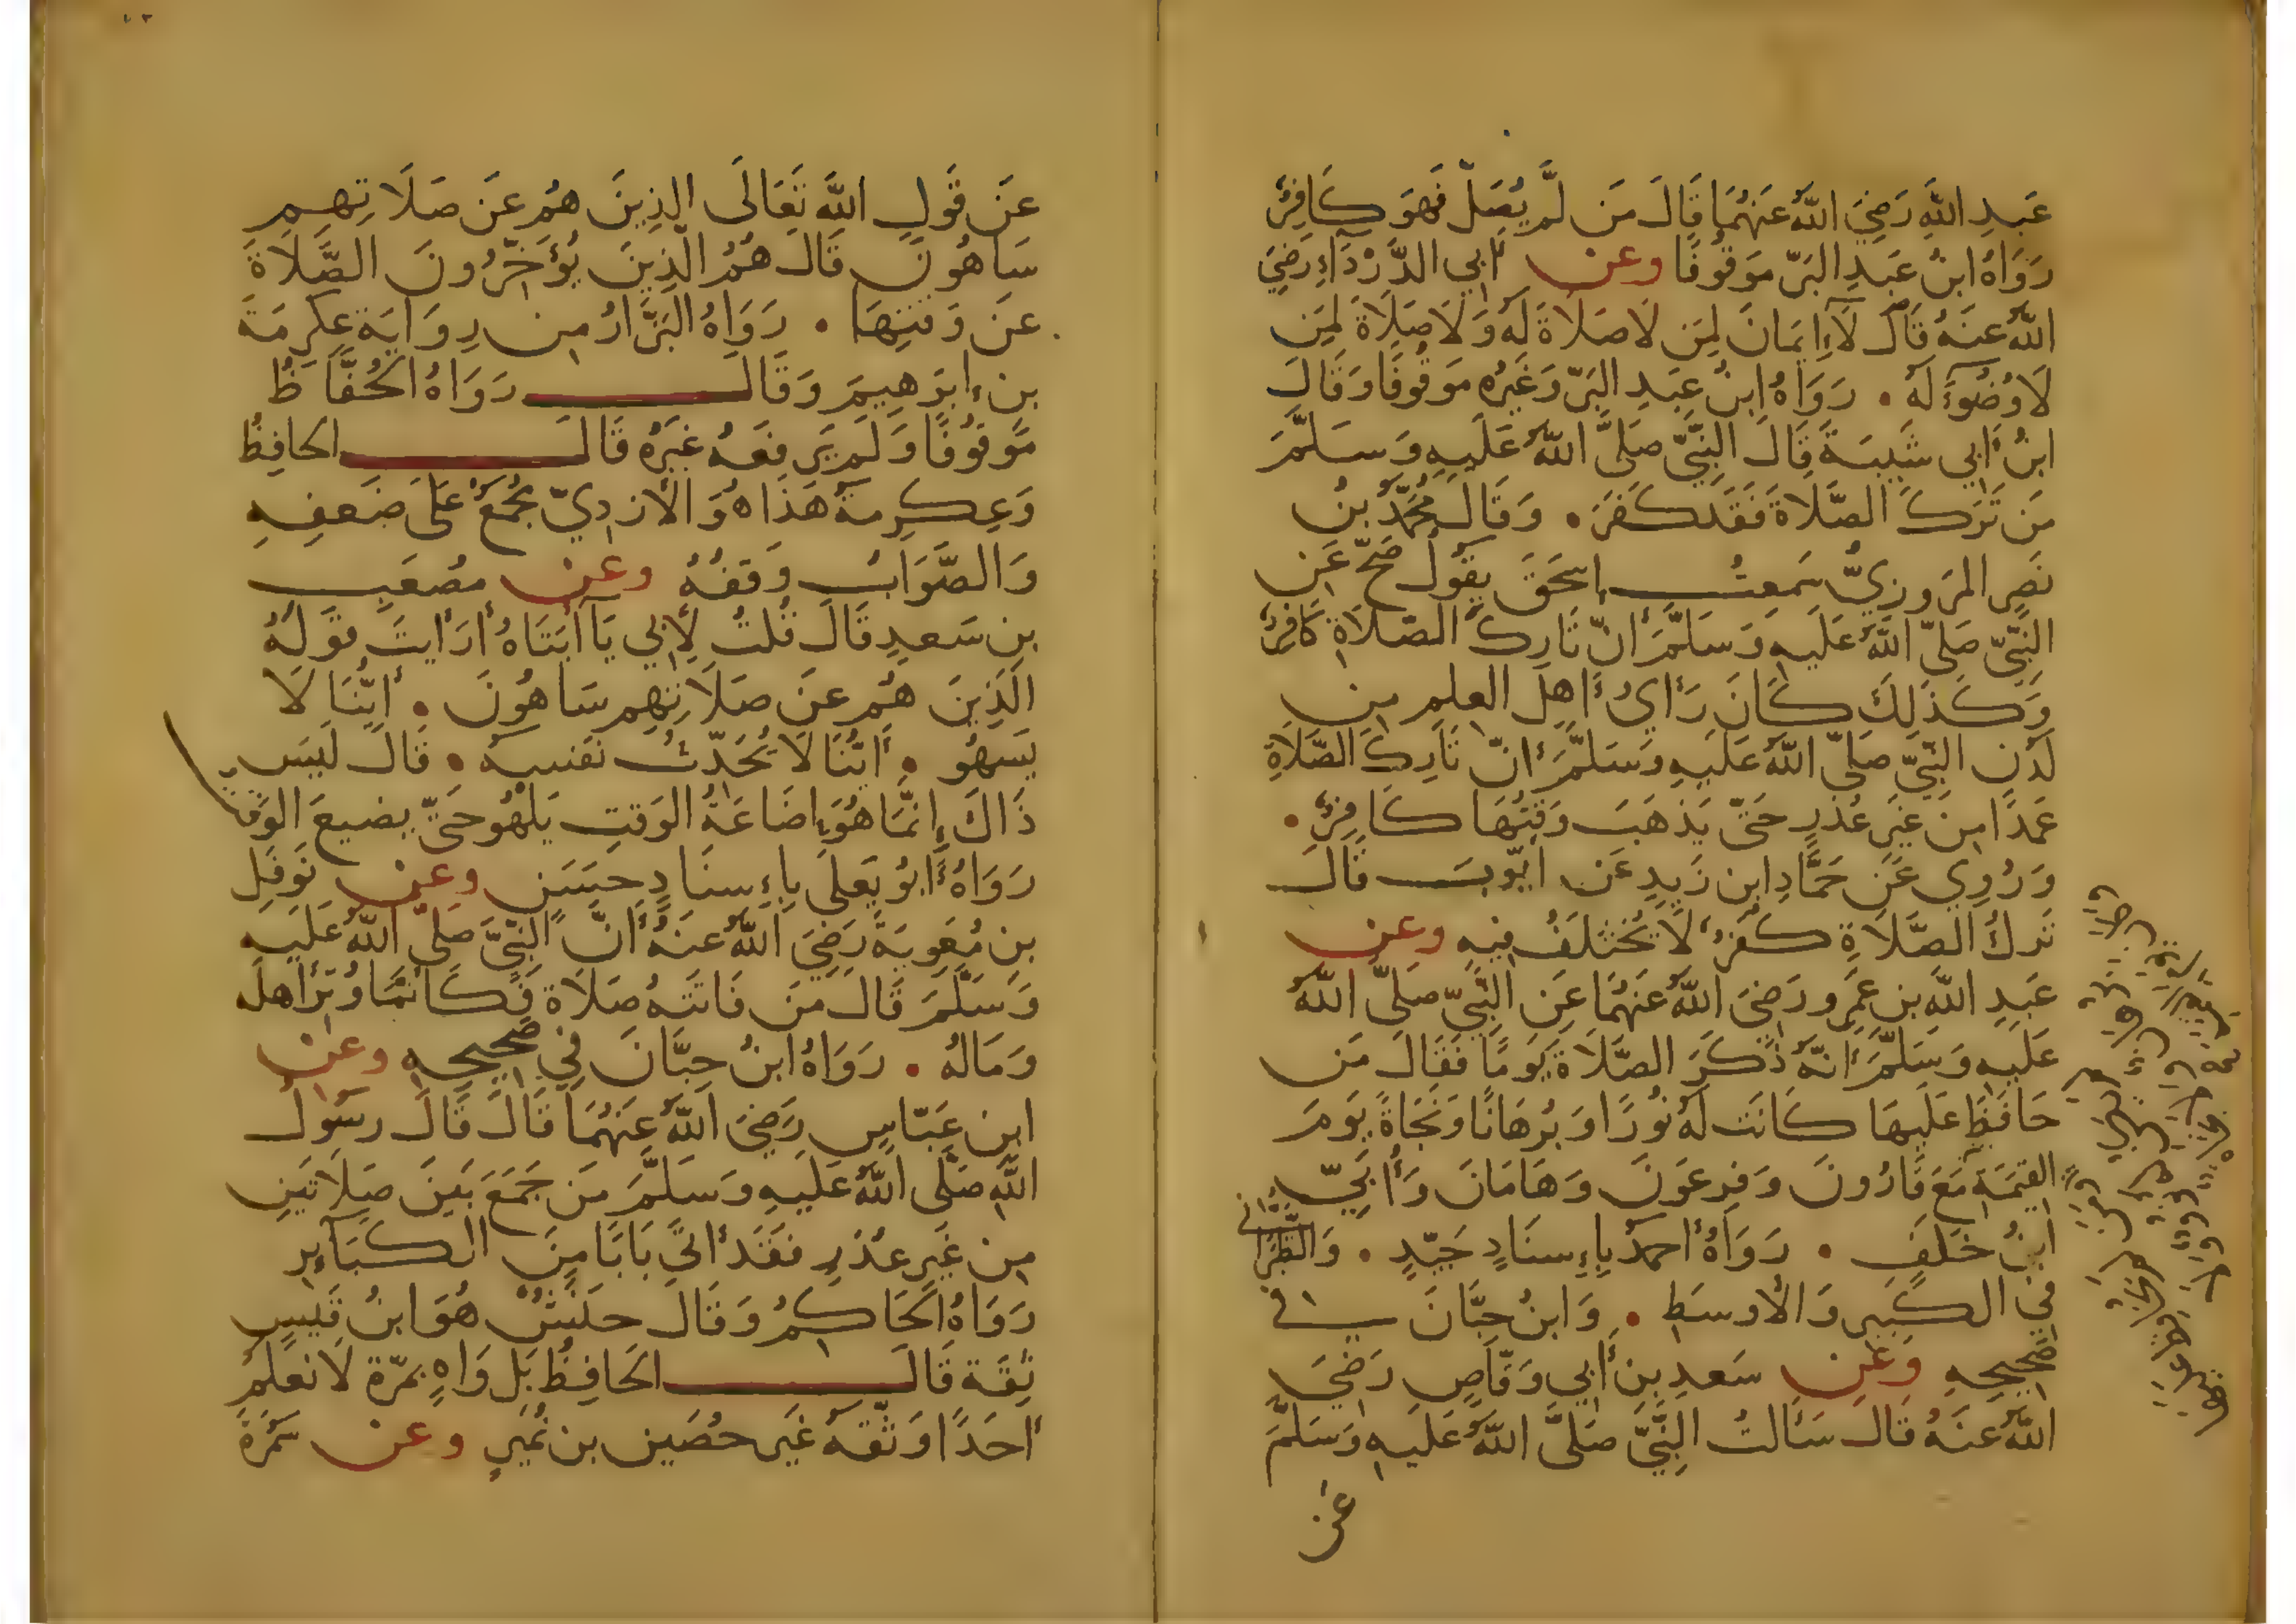 عَبدِ اللَّهِ رَضِيَ اللَّهُ عَنهُمَا قَالَ مَن لَّم يُصَلِّ فَهوَ كَافِرٌ
رَوَاهُ ابنُ عَبدِ البَرِّ مَوقُوفًا وعن أَبي الدَّردَآءِ رَضِيَ
اللَّهُ عَنهُ قَالَ لَآ إِيمَانَ لِمَن لَا صَلَاةَ لَهُ وَلَا صَلَاةَ لِمَن
لَا وُضُوٓءَ لَهُ • رَوَاهُ ابنُ عَبدِ البَرِّ وَغَيرُه مَوقُوفًا وَقَالَ
ابنُ أَبي شَيبَةَ قَالَ النَّبِيُّ صَلَّى اللَّهُ عَلَيهِ وَسَلَّمَ
مَن تَرَكَ الصَّلَاةَ فَقَد كَفَرَ • وَقَالَ مُحَمَّدُ بنُ
نَصرٍ المَروَزِيُّ سَمِعتُ إِسحَقَ يَقُولُ صَحَّ عَنِ
النَّبِيِّ صَلَّى اللَّهُ عَلَيهِ وَسَلَّمَ أَنَّ تَارِكَ الصَّلَاةِ كَافِرٌ
وَكَذَلِكَ كَانَ رَأيُ أَهلِ العِلمِ مِن
لَدُنِ النَّبِيِّ صَلَّى اللَّهُ عَلَيهِ وَسَلَّمَ أَنَّ تَارِكَ الصَّلَاةِ
عَمدًا مِن غَيرِ عُذرٍ حَتَّى يَذهَبَ وَقتُهَا كَافِرٌ •
وَرُوِي عَن حَمَّادِ ابنِ زَيدٍ عَن أَيّوبَ قَالَ
تَركُ الصَّلَاةِ كُفرٌ لَا يُختَلَفُ فِيهِ وعن
عَبدِ اللَّهِ بنِ عَمرٍو رَضِيَ اللَّهُ عَنهُمَا عَنِ النَّبِيِّ صَلَّى اللَّهُ
عَلَيهِ وَسَلَّمَ أَنَّهُ ذَكَرَ الصَّلَاةَ يَومًا فَقَالَ مَن
حَافَظَ عَلَيهَا كَانَت لَهُ نُورًا وَبُرهَانًا وَنَجَاةً يَومَ
القِيَمَةِ مَعَ قَارُونَ وَفِرعَونَ وَهَامَانَ وَأُبَيِّ
ابنُ خَلَفٍ • رَوَاهُ أَحمَدُ بِإِسنَادٍ جَيِّدٍ • وَالطَّبَرَانِي
فِي الكَبِيرِ وَالأَوسَطِ • وَابنُ حِبَّانَ فِي
صَحِيحِهِ وَعَن سَعدِ بنِ أَبي وَقَّاصٍ رَضِيَ
اللَّهُ عَنهُ قَالَ سَأَلتُ النَّبِيَّ صَلَّى اللَّهُ عَلَيهِ وَسَلَّمَ
عَن
عَن قَولِ اللَّهِ تَعَالَى الَّذِينَ هُم عَن صَلَاتِهِم
سَاهُونَ قَالَ هُمُ الَّذِينَ يُؤَخِّرُونَ الصَّلَاةَ
عَن وَقتِهَا • رَوَاهُ البَزَّارُ مِن رِوَايَةِ عِكرِمَةَ
بنِ إِبرَهِيمَ وَقَالَ رَوَاهُ الحُفَّاظُ
مَوقُوفًا وَلَم يَرفَعهُ غَيرُهُ قَالَ الحَافِظُ
وَعِكرِمَةُ هَذَا هُوَ الأَزدِيُّ مُجمَعٌ عَلَى ضَعفِهِ
وَالصَّوَابُ وَقفُهُ وعن مُصعَبِ
بنِ سَعدٍ قَالَ قُلتُ لِأَبِي يَآ أَبَتَاهُ أَرَأَيتَ قَولَهُ
الَّذِينَ هُم عَن صَلَاتِهِم سَاهُونَ • أَيُّنَا لَا
يَسهُو • أَيُّنَا لَا يُحَدِّثُ نَفسَهُ • قَالَ لَيسَ
ذَاكَ إِنَّمَا هُوَ إِضَاعَةُ الوَقتِ يَلهُو حَتَّى يَضيعَ الوَقت
رَوَاهُ أَبُو يَعلَى بِإِسنَادٍ حَسَنٍ وعن نَوفَلِ
بنِ مُعَوِيَةَ رَضِيَ اللَّهُ عَنهُ أَنَّ النَّبِيَّ صَلَّى اللَّهُ عَلَيهِ
وَسَلَّمَ قَالَ مَن فَاتَتهُ صَلَاة فَكَأَنَّمَا وُتِرَ أَهلَه
وَمَالُه • رَوَاهُ ابنُ حِبَّانَ فِي صَحِيحِهِ وعن
ابنِ عَبَّاسٍ رَضِيَ اللَّهُ عَنهُمَا قَالَ قَالَ رسُولُ
اللَّهِ صَلَّى اللَّهُ عَلَيهِ وَسَلَّمَ مَن جَمَعَ بَينَ صَلَاتَينِ
مِن غَيرِ عُذرٍ فَقَد أَتَى بَابًا مِنَ الكَبَآئِرِ
رَوَاهُ الحَاكِمُ وَقَالَ حَنَشٌ هُوَ ابنُ قَيسٍ
ثِقَة قَالَ الحَافِظُ بَل وَاهٍ بمَرّة لَا نَعلَمُ
أَحَدًا وَثَّقَهُ غَير حُصَينِ بنِ نُمَيرٍ وعن سَمُرَةَ